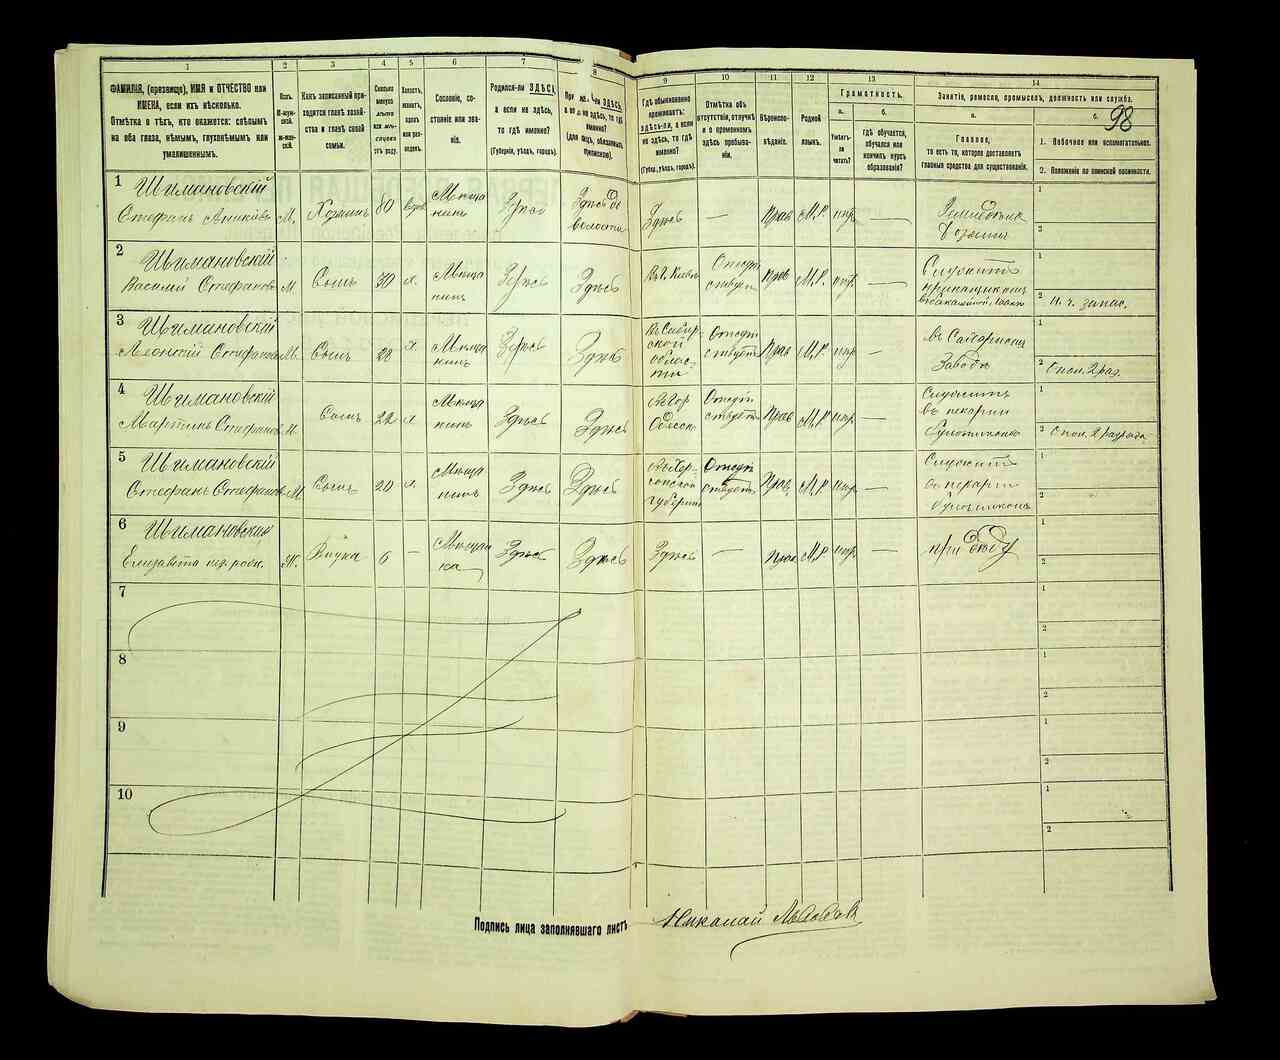 1 2 3 4 5 6 7 8 9 10 11 12 13 14
98
ФАМИЛІЯ, (прозвище), ИМЯ и ОТЧЕСТВО или
ИМЕНА, если ихъ нѣсколько.
Отмѣтка о тѣхъ, кто окажется: слѣпымъ
на оба глаза, нѣмымъ, глухонѣмымъ или
умалишеннымъ.
Полъ.
М-муж-
ской.
ж-жен-
скій.
Какъ записанный при-
ходится главѣ хозяй-
ства и главѣ своей
семьи.
Сколько
минуло
лѣтъ
или мѣ-
сяцевъ
отъ роду.
Холостъ,
женатъ,
вдовъ
или раз-
веденъ.
Сословіе, со-
стояніе или зва-
ніе.
Родился-ли ЗДѢСЬ,
а если не здѣсь,
то гдѣ именно?
(Губернія, уѣздъ, городъ).
ЗДѢСЬ,
а если не здѣсь, то гдѣ
именно?
(для лицъ, обязанныхъ
припискою).
Гдѣ обыкновенно
проживаетъ:
здѣсь-ли, а если
не здѣсь, то гдѣ
именно?
(Губер., уѣздъ, городъ).
Отмѣтка объ
отсутствіи, отлучкѣ
и о временномъ
здѣсь пребыва-
ніи.
Вѣроиспо-
вѣданіе.
Родной
языкъ.
Грамотность.
а.
Умѣетъ-
ли
читать?
б.
гдѣ обучается,
обучался или
кончилъ курсъ
образованія?
Занятіе, ремесло, промыселъ, должность или служба.
а.
Главное,
то есть то, которое доставляетъ
главныя средства для существованія.
б.
1. Побочное или вспомогательное.
2. Положеніе по воинской повинности.
1 Шимановскій
Стефанъ М. Хозяинъ 80 Мѣща-
нинъ Здѣсь Здѣсь
волости Здѣсь — Прав М.Р. —
1
2
2 Шимановскій
Василій Стефановъ М Сынъ 30 х. Мѣща
нинъ Здѣсь Здѣсь Въ г. Кіевѣ Отсут
ствуетъ Прав М.Р. —
Служитъ
прикащикомъ
1
2 н. ч. запас.
3 Шимановскій
Леонтій Стефановъ М. Сынъ 28 х Мѣща
нинъ Здѣсь Здѣсь Въ Сибир-
ской
облас-
ти Отсут
ствуетъ Прав М.Р. —
въ
Заводѣ
1
2 Опол. 2 раз.
4 Шимановскій
Мартинъ Стефановъ М. Сынъ 22 х Мѣща
нинъ Здѣсь Здѣсь Въ гор
Одессѣ Отсут
ствуетъ Прав М.Р. —
Служитъ
въ пекарни
1
2 Опол. 2 разряда
5 Шимановскій
Стефанъ Стефановъ М. Сынъ 20 х. Мѣща
нинъ Здѣсь Здѣсь Въ Хер-
сонской
губерніи Отсут
ствуетъ Прав. М.Р. —
Служитъ
въ пекарни
1
2
6 Шимановская
Елизавета Ж. Внука 6 — Мѣщан
ка Здѣсь Здѣсь Здѣсь — Прав М.Р. —
при
1
2
7
1
2
8
1
2
9
1
2
10
1
2
Подпись лица заполнявшаго листъ Николай